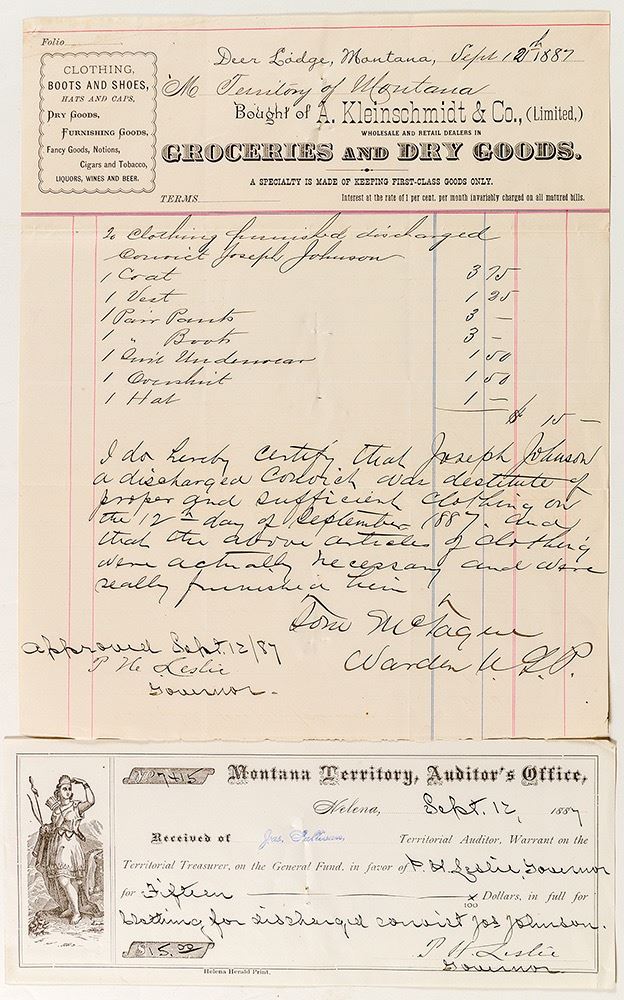 Folio
CLOTHING,
BOOTS AND SHOES,
HATS AND CAPS,
DRY GOODS,
FURNISHING GOODS,
Fancy Goods, Notions,
Cigars and Tobacco,
LIQUORS, WINES AND BEER.
Deer Lodge, Montana, Sept 12th 1887
M Territory of Montana
Bought of A. Kleinschmidt & Co., (Limited,)
WHOLESALE AND RETAIL DEALERS IN
GROCERIES AND DRY GOODS.
A SPECIALTY IS MADE OF KEEPING FIRST-CLASS GOODS ONLY.
TERMS
Interest at the rate of 1 per cent. per month invariably charged on all matured bills.
To Clothing furnished discharged
Convict Joseph Johnson
1 Coat 3 75
1 Vest 1 25
1 Pair Pants 3 –
1 " Boots 3 –
1 Suit Underwear 1 50
1 Overshirt 1 50
1 Hat 1 –
$ 15 –
I do hereby certify that Joseph Johnson
a discharged Convict was destitute of
proper and sufficient clothing on
the 12th day of September 1887. and
that the above articles of clothing
were actually necessary and were
really furnished him
Tom McTague
Warden U.S.P.
approved Sept. 12/87
P H Leslie
Governor.
No 7415
Montana Territory, Auditor's Office,
Helena, Sept. 12, 1887
Received of Jas. Sullivan, Territorial Auditor, Warrant on the
Territorial Treasurer, on the General Fund, in favor of P. H. Leslie, Governor
for Fifteen x/100 Dollars, in full for
Clothing for discharged convict Jos Johnson.
$15.00
P H Leslie
Governor
Helena Herald Print.